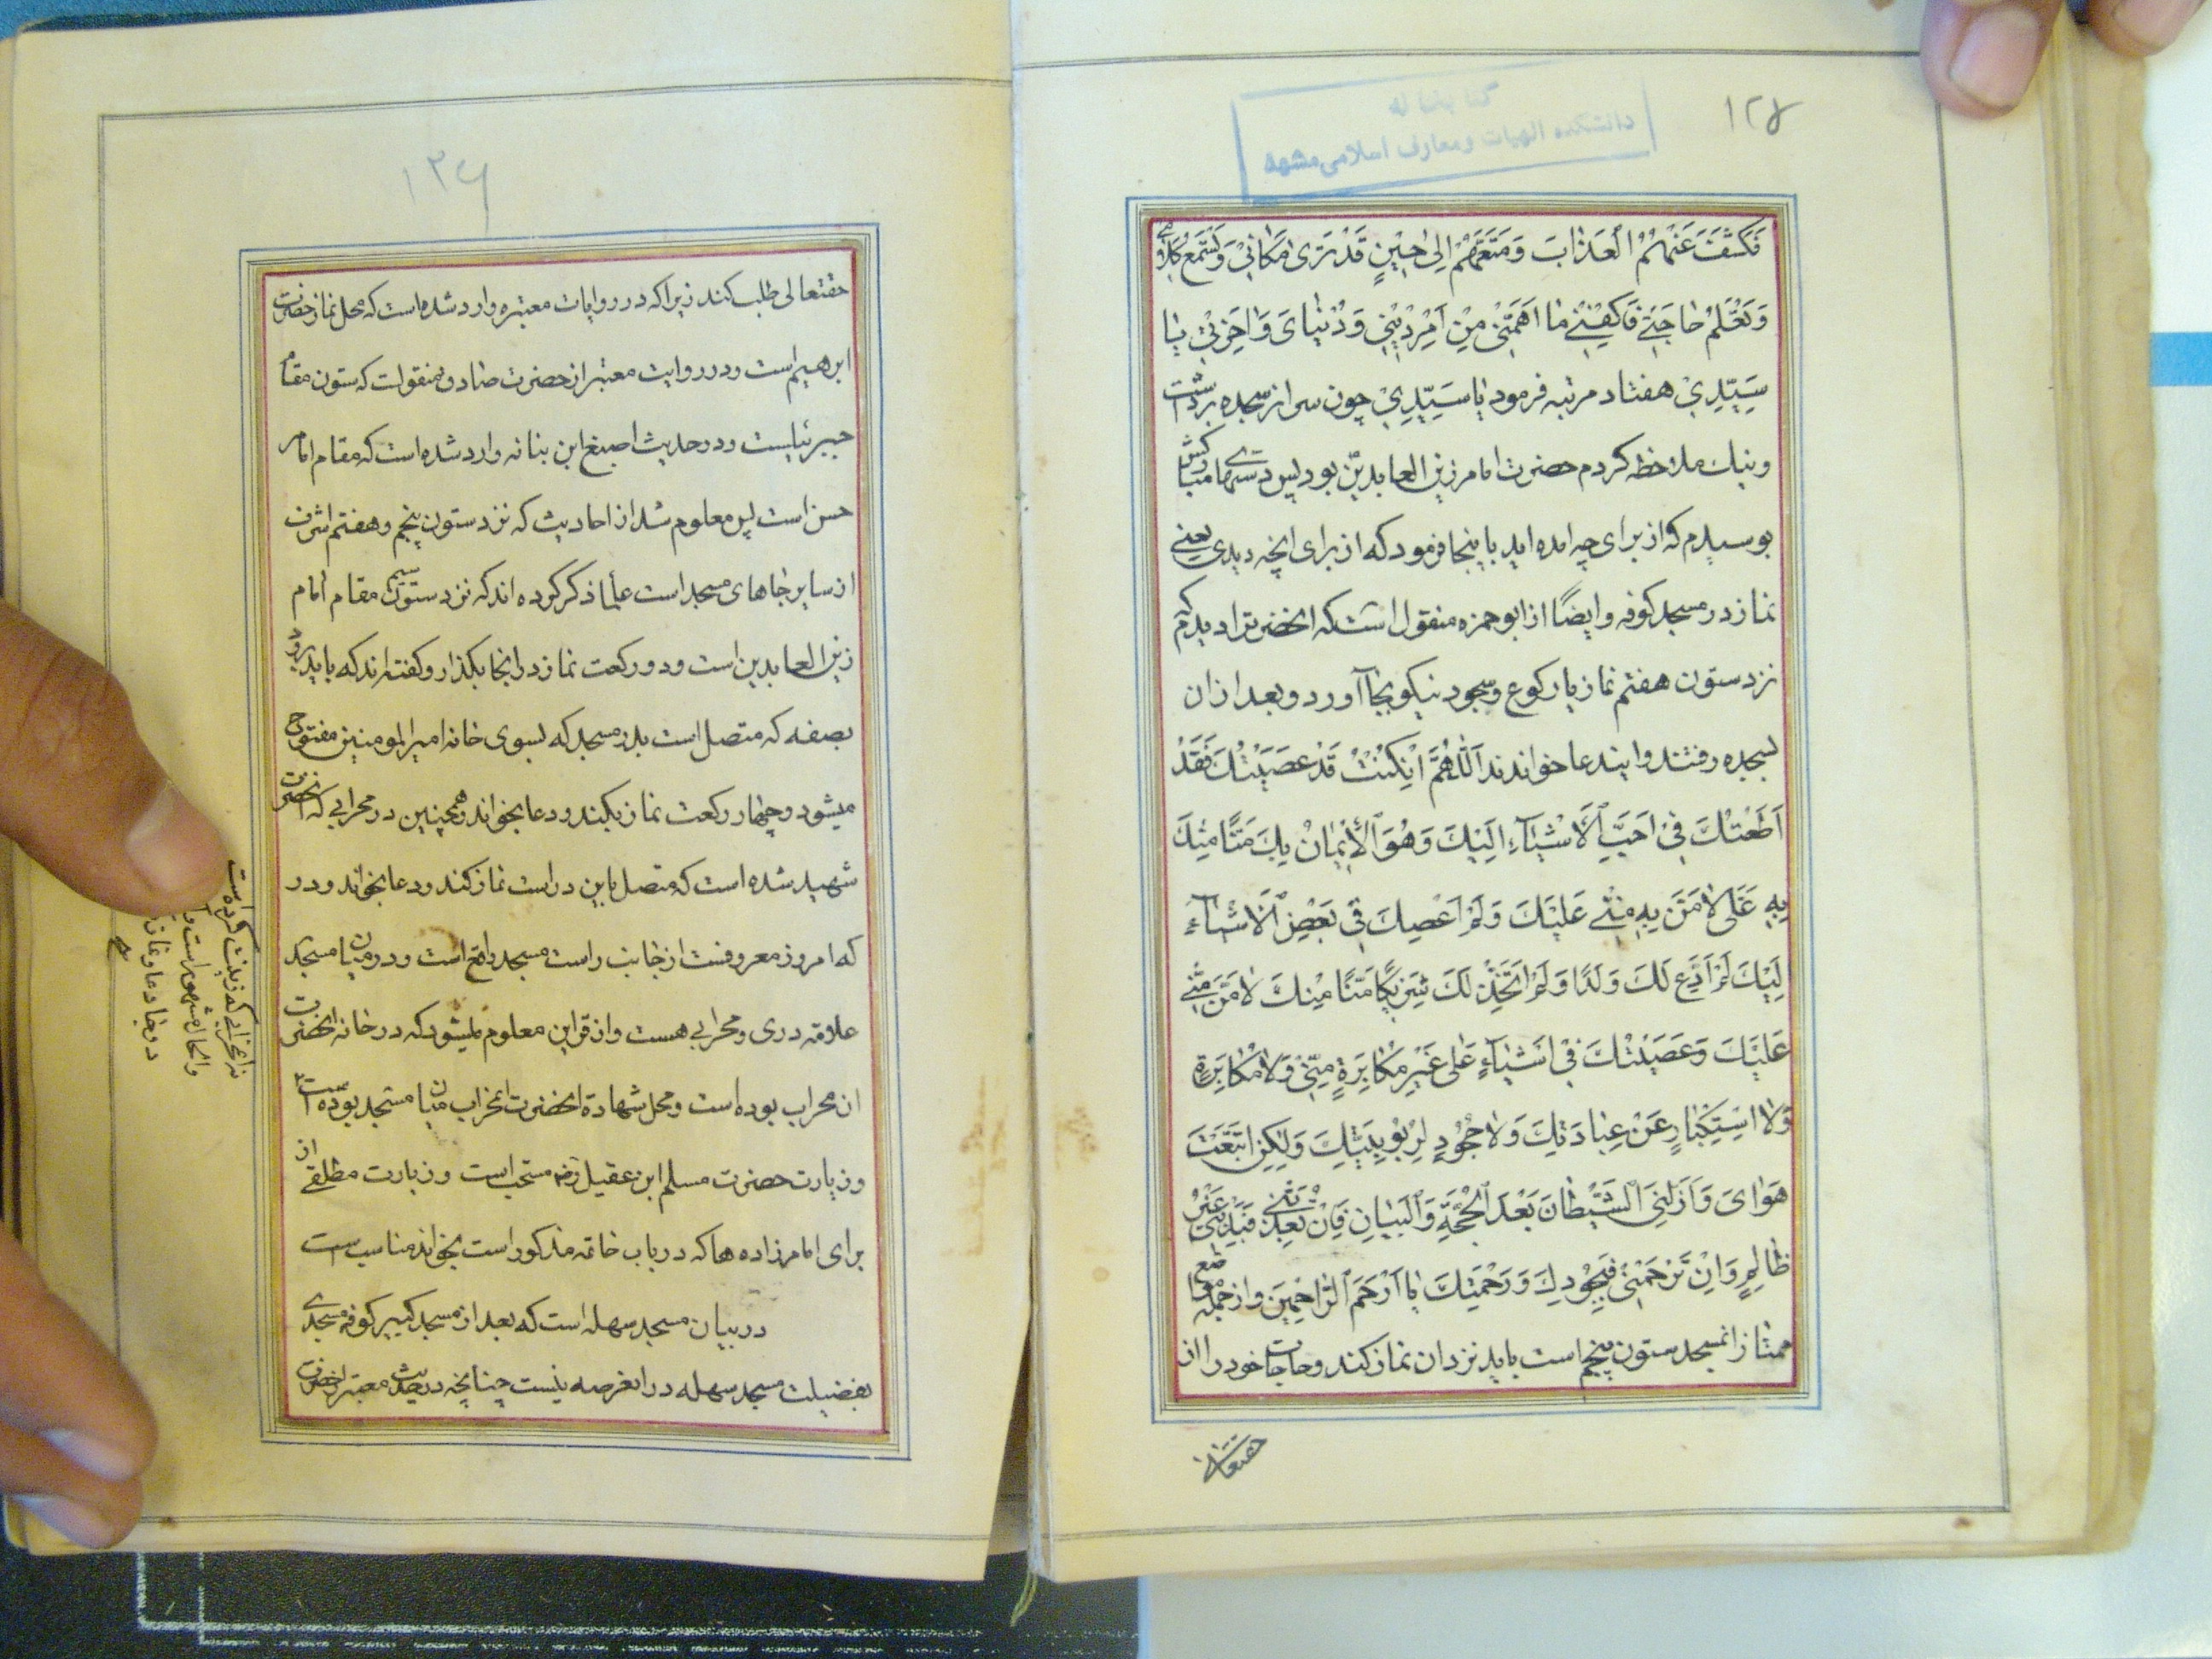 ۱۲۵
کتابخانه
دانشکده الهیات و معارف اسلامی مشهد
فَكَشَفْتَ عَنْهُمُ الْعَذابَ وَمَتَّعْتَهُمْ اِلى حِيْنٍ قَدْ تَرى مَكانيْ وَتَسْمَعُ كَلامي
وَتَعْلَمُ حاجَتي فَاكْفِني ما اَهَمَّنيْ مِنْ اَمْرِ دِيْنِي وَدُنْيايَ وَاٰخِرَتيْ يا
سَيِّدِيْ هفتاد مرتبه فرمود يا سَيِّدِيْ چون سر از سجده برداشت
و نیك ملاحظه کردم حضرت امام زین العابدین بود پس دستهای مبارکش
بوسیدم که از برای چه امده اید باینجا فرمود که از برای انچه دیدی یعنی
نماز در مسجد کوفه و ایضًا از ابو حمزه منقول است که انحضرت را دیدم که
نزد ستون هفتم نماز با رکوع و سجود نیکو بجا آورد و بعد از ان
بسجده رفتند و ایندعا خواندند اَللّٰهُمَّ اِنْكُنْتُ قَدْ عَصَيْتُكَ فَقَدْ
اَطَعْتُكَ فيْ اَحَبِّ الْاَشْيآءِ اِلَيْكَ وَهُوَ الْاِيْمانُ بِكَ مَنًّا مِنْكَ
بِهِ عَلَى لا مَنّ بِهِ مِنّي عَلَيْكَ وَلَمْ اَعْصِكَ في بَعْضِ الْاَشْيآءِ
لَيْكَ لَمْ اَدَعِ لَكَ وَلَدًا وَلَمْ اَتَّخِذْ لَكَ شَرِيْكًا مَنًّا مِنْكَ لا مَنّ مِنّي
عَلَيْكَ وَعَصَيْتُكَ فيْ اَشْيآءٍ عَلى غَيْرِ مُكابَرَةٍ مِنّيْ وَلا مُكابَرَةٍ
وَلا اسْتِكْبارٍ عَنْ عِبادَتِكَ وَلا جُحُوْدٍ لِرُبُوْبِيَّتِكَ وَلٰكِنِ اتَّبَعْتُ
هَوايَ وَاَزَلَّنِيَ الشَّيْطانُ بَعْدَ الْحُجَّةِ وَالْبَيانِ فَاِنْ تُعَذِّبْنِي فَبِذَنْبي غَيْرُ
ظالِمٍ وَاِنْ تَرْحَمْنيْ فَبِجُوْدِكَ وَرَحْمَتِكَ يا اَرْحَمَ الرّاحِمِيْنَ و از جمله مواضع
ممتاز انمسجد ستون پنجم است باید نزد ان نماز کند و حاجات خود را از
حقتعالی
۱۲۶
حقتعالی طلب کند زیرا که در روایات معتبره وارد شده است که محل نماز حضرت
ابرهیم است و در روایت معتبر از حضرت صادق منقولست که ستون مقام
جبرئیلست و در حدیث اصبغ ابن بناته وارد شده است که مقام امام
حسن است پس معلوم شد از احادیث که نزد ستون پنجم و هفتم اشرف
از سایر جاهای مسجد است علما ذکر کرده اند که نزد ستون سیم مقام امام
زین العابدین است و دو رکعت نماز در انجا بکذار و کفته اند که باید برود
بصفه که متصل است بدر مسجد که بسوی خانه امیر المومنین مفتوح
میشود و چهار رکعت نماز بکند و دعا بخواند و همچنین در محرابی که انحضرت
شهید شده است که متصل باین در است نماز کند و دعا بخواند و در
که امروز معروفست از جانب راست مسجد واقع است و در میان مسجد
علاقه دری و محرابی هست و از قراین معلوم میشود که در خانه انحضرت
ان محراب بوده است و محل شهادة انحضرت انمحراب میان مسجد بوده است
و زیارت حضرت مسلم ابن عقیل رضه مستحب است و زیارت مطلقی از
برای امام زاده ها که در باب خاتمه مذکور است بخواند مناسب است
در بیان مسجد سهله است که بعد از مسجد کبیر کوفه مسجدی
بفضیلت مسجد سهله در انعرصه نیست چنانچه در حدیث معتبر از حضرت
نه انمحرابی که زینت کرده است
والحال مشهور است و
دوجا دعا و نماز